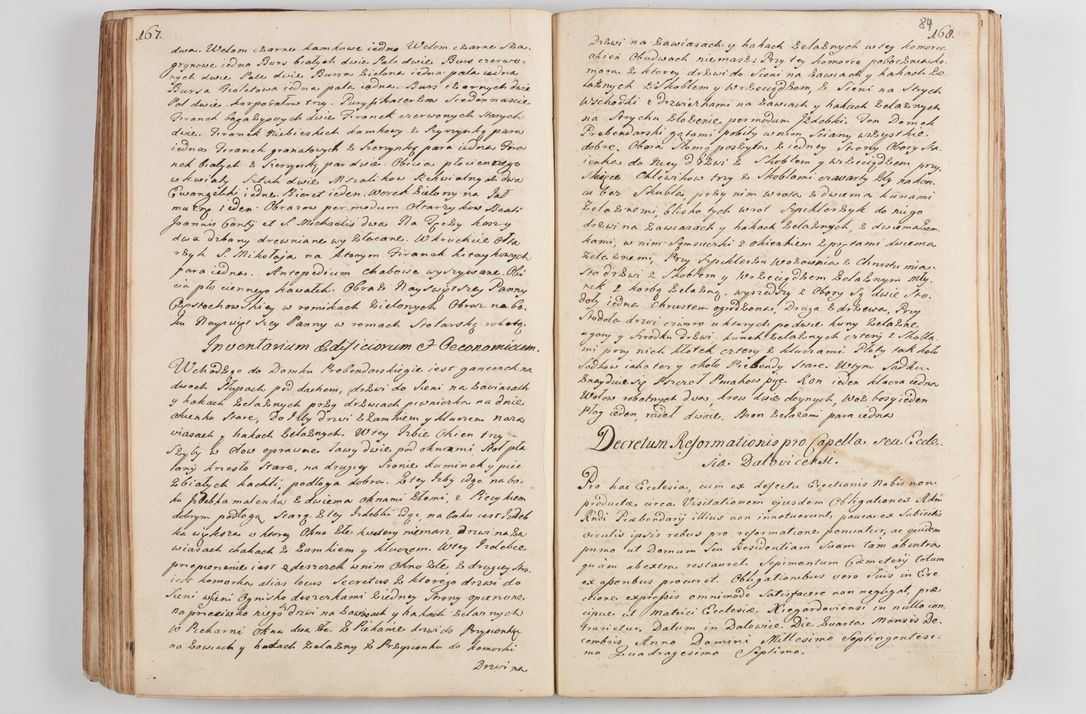 167.
dwa. Welom czarne kamkowe iedno Welom czarne Sza,
grynowe iedno Burs białych dwie Pale dwie. Burs czerwo,
nych dwie Pale dwie. Bursa Zielona iedna pala iedna
Bursa Fioletowa iedna pala iedna. Burs czarnych dwie
Pal dwie, korporałow try. Puryfikaterzow Siedmnascie
Firanek bagazyowych dwie Firanek czerwonych Starych
dwie. Firanek Niebieskich kamkowy z Frynzyką para
iedna Firanek granatowych z Frynzyką para iedna Fira
nek białych z Frynzyką par dwie. Obicia płociennego
w kwiaty Sztuk dwie Mszałikow Rekwialnych dwa
Ewangeliik ieden. Bicret ieden. Worek Zielony na Jał
mużnę ieden Obrazow per modum Ołtarzykow Beati
Joannis Canty et S. Michaelis dwa Na Tęczy kosz
dwa dzbany drewniane wyzłacane. W kruchcie Ołta
rzyk S. Mikołaja na ktorym Firanek kitaykowych
para iedna. Antepedium chabowe wyszywane Obi
cia płociennego kawałek. Obraz Nayświętszey Panny
Częstochowskiey w ramikach Zielonych Obraz na bo,
ku Nayświętszey Panny w ramach Stolarską robotą.
Inventarium Ædificiorum et Oeconomicum.
Wchodząc do Domku Prebendarskiego iest ganeczek na
dwoch Słupach pod dachem, drzwi do Sieni na zawiasach
y hakach Żelaznych przy drzwiach
okienko Stare, Do Izby drzwi z zamkiem y kluczem na za
wiasach y hakach żelaznych. W tey Izbie Okien trzy
Szyby w ołow oprawne Ławy dwie pod oknami Stół pla
tany krzesło Stare, na drugiey Stronie kuminek y piec
z białych kachli podłoga dobra. Z tey Izby idąc na bo,
ku Izdebka malenka z dwiema oknami złemi, z Piecykiem
dobrym podłogą Starą. Z tey Izdebki idąc na boku iest Izdeb
ka większa w ktorey Okno złe kwatery niemasz Drzwi na za
wiasach hakach z zamkiem y kluczem. W tey Izdebce
przepierzenie iest z deszczek w nim Okno złe. Z drugiey Stro.
iest komorka alias locus Secretus z ktorego drzwi do
Sieni w Sieni Ognisko deszczkami z iedney Strony opierzone
na przeciwko niego drzwi na zawiasach y hakach żelaznych
do Piekarni Okna dwa złe. Z Piekarnie drzwi do Przysionku
na zawiasach y hakach żelaznych Z Przysionku do komorki
Drzwi na
84
168.
Drzwi na zawiasach y hakach żelaznych w tey komorze
okien Obudwoch niemasz. Przy tey komorze
mara, z ktorey drzwi do Sieni na zawiasach y hakach że
laznych z Skoblem y wrzeciądzem, z Sieni na Strych
Wschodki z drzwiczkami na zawiasach y hakach Żelaznych
na Strychu złożenie per modum Izdebki. Ten Domek
Prebendarski gątami pobity w nim Sciany wszystkie
dobre. Obora Słomą poszyta z iedney Strony Obory Sta,
ienka do niey drzwi z Skoblem y wrzeciądzem przy
Staience Chlewikow trzy z Skoblami czwarty zły hakow.
w tez Skubla przy nim wrota z dwiema kunami
żelaznemi, blisko tych wrot Szpiklerzyk do niego
drzwi na zawiasach y hakach żelaznych, z dwiema
kami, w nim Sąmsieki z okienkiem z prętami dwiema
żelaznemi, Przy Szpiklerzu Wozownia z Chrustu mia,
sto drzwi z Skoblem y wrzeciądzem żelaznym młyn,
nek z korbą żelazną. wyszedszy z Obory Są dwie Sto,
doły iedna Chrustem ogrodzona, Druga z drzewa, Przy
Stodole drzwi czworo u ktorych po dwie kuny żelazne
ugory y Srodku drzwi kunek żelaznych cztery z Skobla,
mi przy nich kłotek cztery z kluczami Płoty tak koło
Sadkow iako tez y około Prebendy Stare. W tym Sadku
znayduie Sie Pszczoł Pniakow pięć. Kon ieden klacza iedna
Wołow robotnych dwa, krow dwie doynych, Woz bosy ieden
Pług ieden, radeł dwoie. Bron żelaznemi para iedna
Decretum Reformationis pro Capella seu Eccle,
sia Dalovicensi.
Pro hac Ecclesia, cum ex defectu Erectionis Nobis non
producta, circa Visitationem ejusdem Obligationes Adm
Rndi Præbendarij illius non innotuerunt, pauca ex Subiectis
oculis ipsis rebus pro reformatione ponuntur, ac quidem
primo ut Domum Seu Residentiam Suam tam ab intra
quàm ab extra restauret. Sepimentum Cæmeterij totum
ex asseribus procuret. Obligationibus vero Suis in Ere
ctione expressis omnimode Satisfacere non negligat, præ
cipue ut Matrici Ecclesiæ Niegardoviensi in nullo con,
trarietur. Datum in Dalowice. Die Quarta Mensis De.
cembris. Anno Domini Millesimo Septingentesi,
mo Quadragesimo Septimo.